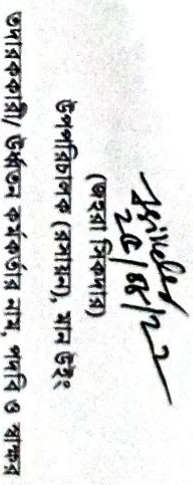 (জহুরা সিকদার)
উপপরিচালক (রসায়ন), মান উইং
তদারককারী/ ঊর্ধ্বতন কর্মকর্তার নাম, পদবি ও স্বাক্ষর